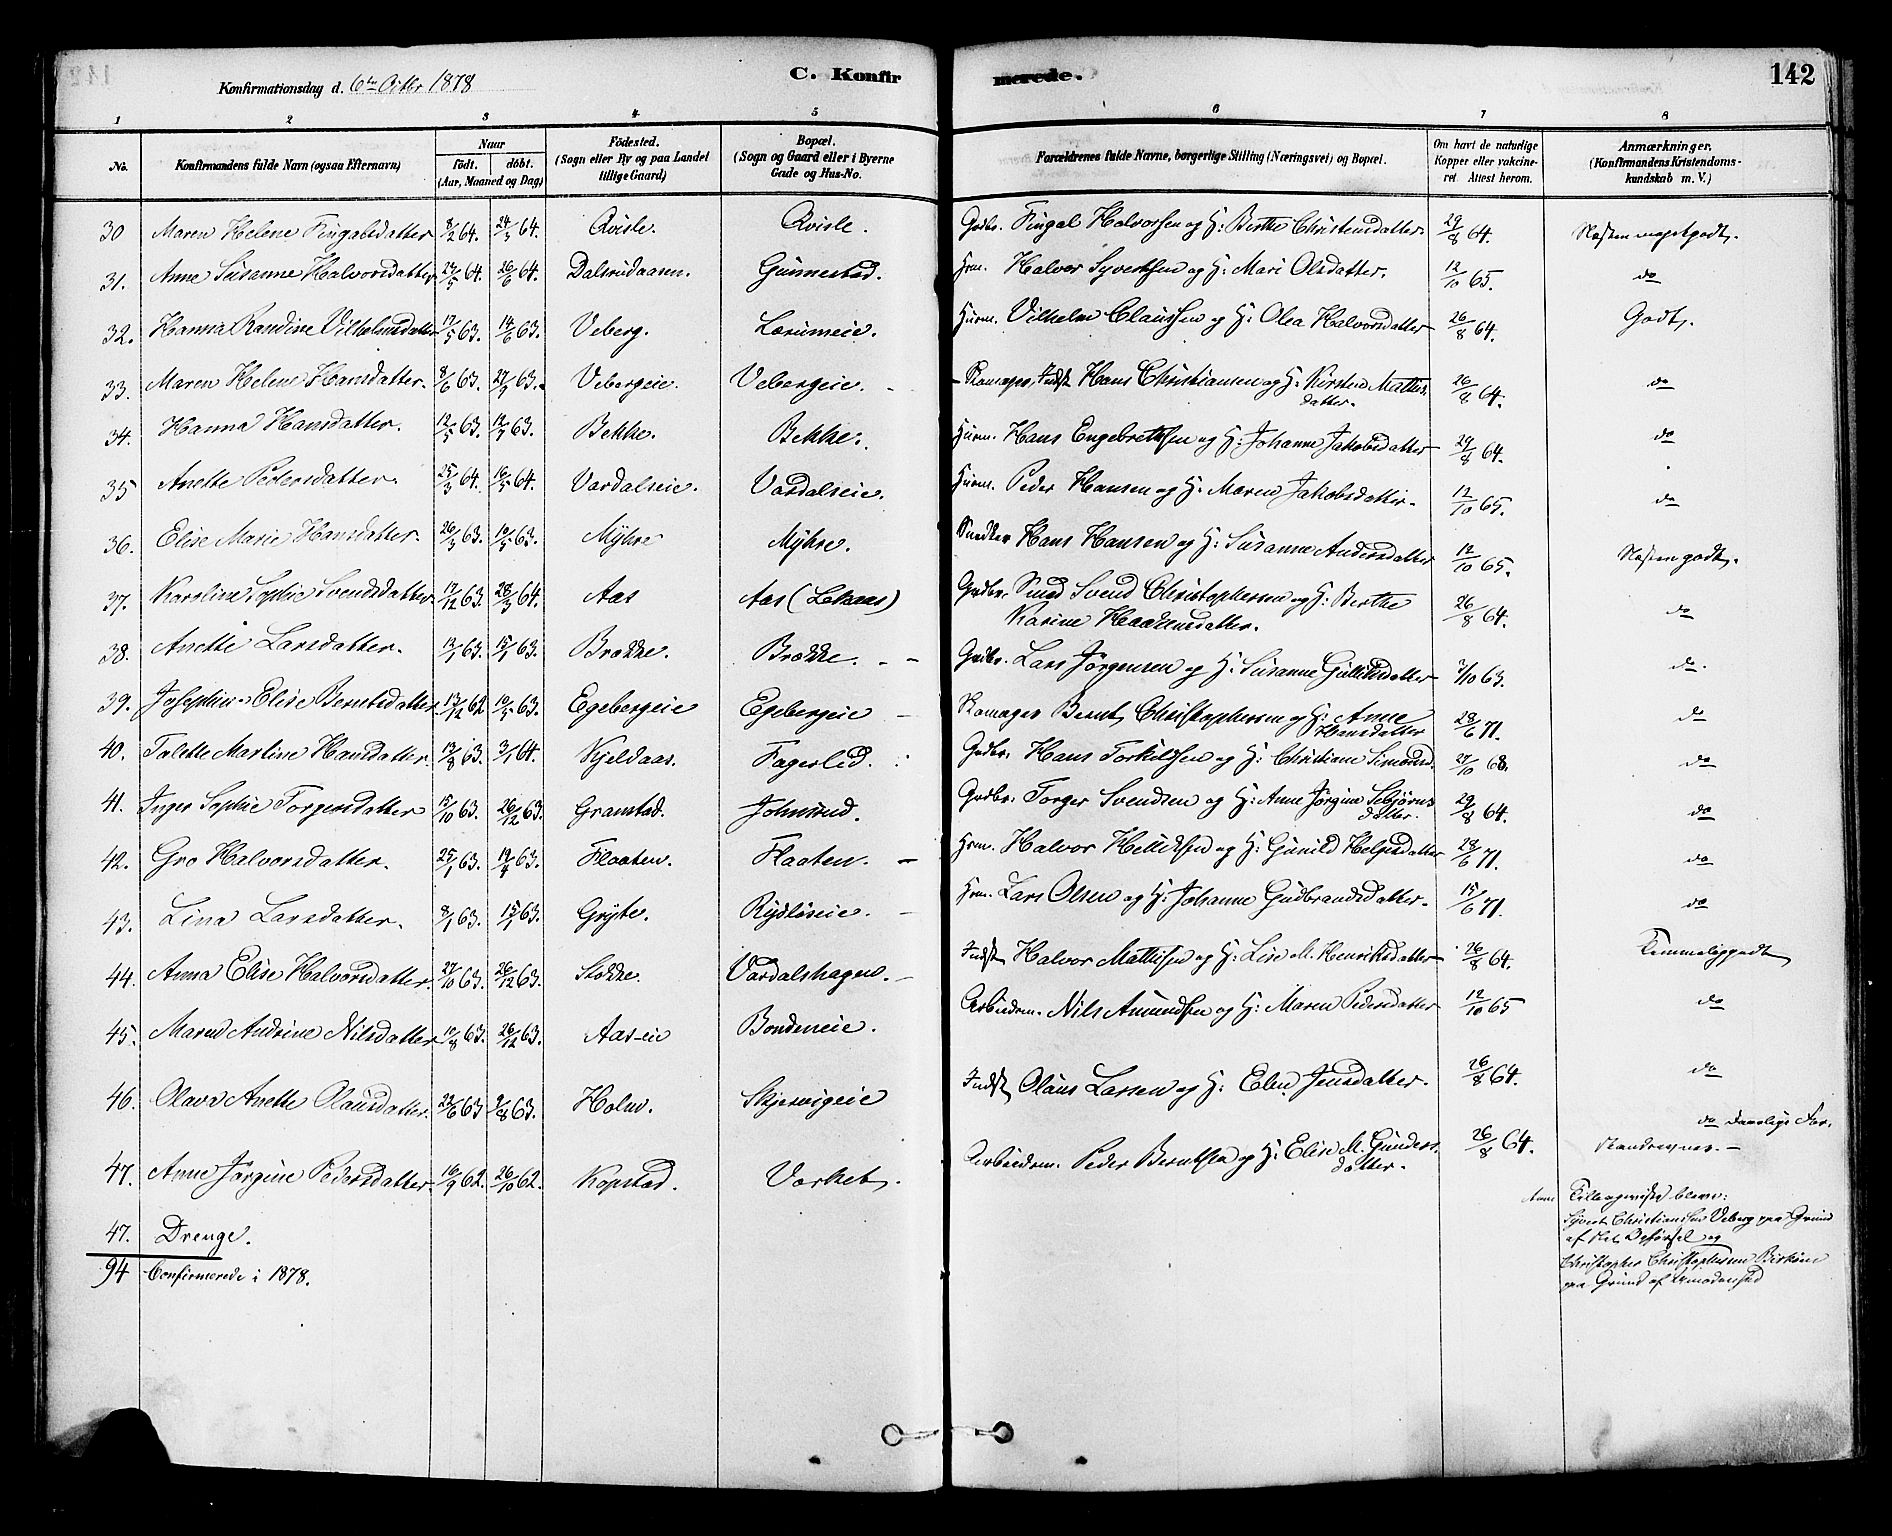 142
Konfirmationsdag d. 6te Octbr 1878
C. Konfirmerede.
1 2 3 4 5 6 7 8
No. Konfirmandens fulde Navn (ogsaa Efternavn) Naar födt. döbt. (Aar, Maaned og Dag) Födested. (Sogn eller By og paa Landet tillige Gaard) Bopæl. (Sogn og Gaard eller i Byerne Gade og Hus-No. Forældrenes fulde Navne, borgerlige Stilling (Næringsvei) og Bopæl. Om havt de naturlige Kopper eller vakcineret Attest herom. Anmærkninger. (Konfirmandens Kristendomskundskab m. V.)
30 Maren Helene Fingalsdatter 8/2 64. 24/3 64. Qvisle. Qvisle. Gdbr. Fingal Halvorsen og H: Berthe Christensdatter. 29/8 64. Næsten megetgodt.
31. Anne Susanne Halvorsdatter 24/5 64. 26/6 64. Dalsrudaasen. Gunnestad. Hrm. Halvor Syvertsen og H: Mari Olsdatter. 12/10 65. do
32. Hanna Randine Vilhelmsdatter 17/5 63. 14/6 63. Veberg. Lærumeie. Husm. Vilhelm Claussen og H: Olea Halvorsdatter 26/8 64. Godt.
33. Maren Helene Hansdatter. 8/6 63. 27/9 63. Vebergeie. Vebergeie. Skomager, Indst Hans Christiansen og H: Kirsten Mathisdatter. 26/8 64. do
34. Hanna Hansdatter. 12/5 63. 12/7 63. Bekke. Bekke. Husm. Hans Engebretsen og H: Johanne Jakobsdatter 29/8 64. do
35 Anette Pedersdatter. 25/3 64. 16/5 64. Vardalseie. Vardalseie. Husm. Peder Hansen og H: Maren Jakobsdatter. 12/10 65. do
36. Elise Marie Hansdatter. 26/3 63. 10/5 63. Myhre Myhre. Snedker Hans Hansen og H: Susanne Andersdatter 12/10 65. Næsten godt.
37. Karoline Sophie Svendsdatter 17/12 63. 28/3 64. Aas Aas (Lekaas) Gdbr. Smed Svend Christophersen og H: Berthe
Karine Haakensdatter. 26/8 64. do
38. Anette Larsdatter. 13/1 63. 15/1 63. Brække. Brække. Gdbr. Lars Jörgensen og H: Susanne Gulliksdatter 7/10 63. do.
39. Josephine Elise Berntsdatter 13/12 62 10/5 63. Egebergeie Egebergeie Skomager Bernt Christophersen og H: Anne
Hansdatter 28/6 71. do
40. Tolette Martine Hansdatter. 13/8 63. 3/1 64. Kjeldaas. Fagerlid. Gdbr. Hans Torkildsen og H: Christiane Simonsd. 27/10 68. do
41. Inger Sophie Torgersdatter 15/10 63. 26/12 63. Granstad. Johnsrud. Gdbr. Torger Svendsen og H: Anne Jörgine Sebjörnsdatter. 29/8 64. do
42. Gro Halvorsdatter. 25/1 63. 19/4 63. Flaaten. Flaaten. Hrm. Halvor Helliksen og H: Gunild Helgesdatter 28/6 71. do
43. Lina Larsdatter. 8/1 63. 15/1 63. Gryte. Rydlöseie. Hrm. Lars Olsen og H: Johanne Gudbrandsdatter. 15/6 71. do
44. Anna Elise Halvorsdatter. 27/10 63. 26/12 63. Stokke. Vardalshagen. Indst Halvor Mathisen og H: Lise M. Henriksdatter 26/8 64. Temmeliggodt
45. Maren Andrine Nilsdatter 12/8 63. 26/12 63. Aas-eie Bondeneie. Arbeidsm. Nils Amundsen og H: Maren Pedersdatter 12/10 65 do
46. Olava Anette Olausdatter. 22/6 63 2/8 63. Holm. Skjersvigeie Indst Olaus Larsen og H: Elen Jensdatter. 26/8 64. do
47. Anne Jörgine Pedersdatter 16/9 62. 26/10 62. Kopstad. Værket. Arbeidsm. Peder Berntsen og H: Elise M. Gundersdatter. 26/8 64. do Daarlige Forstandsevner.
47. Drenge.
94 Confirmerede i 1878.
Anm Tilbageviste bleve:
Syvert Christiansen Veberg paa Grund
af slet Opförsel og
Christopher Christophersen Birkön
paa Grund af Umodenhed